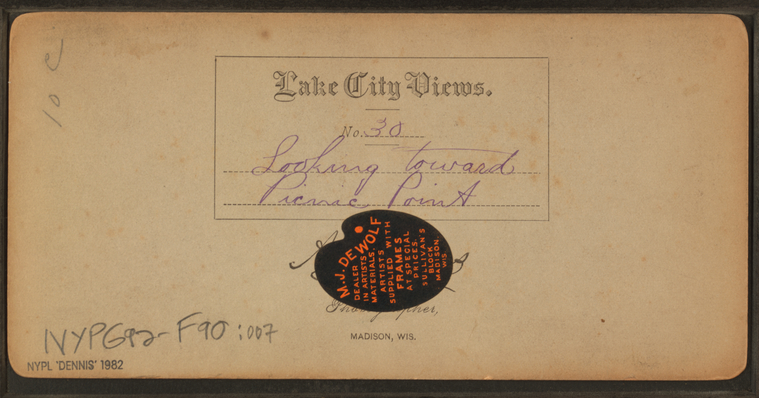 10 c
Lake City Views.
No. 30
Looking toward
Picnic Point
M.J. DEWOLF
DEALER
IN ARTISTS
MATERIALS.
ARTISTS
SUPPLIED WITH
FRAMES
AT SPECIAL
PRICES.
SULLIVAN'S
BLOCK
MADISON.
WIS.
MADISON, WIS.
NYPG92-F90:007
NYPL 'DENNIS' 1982